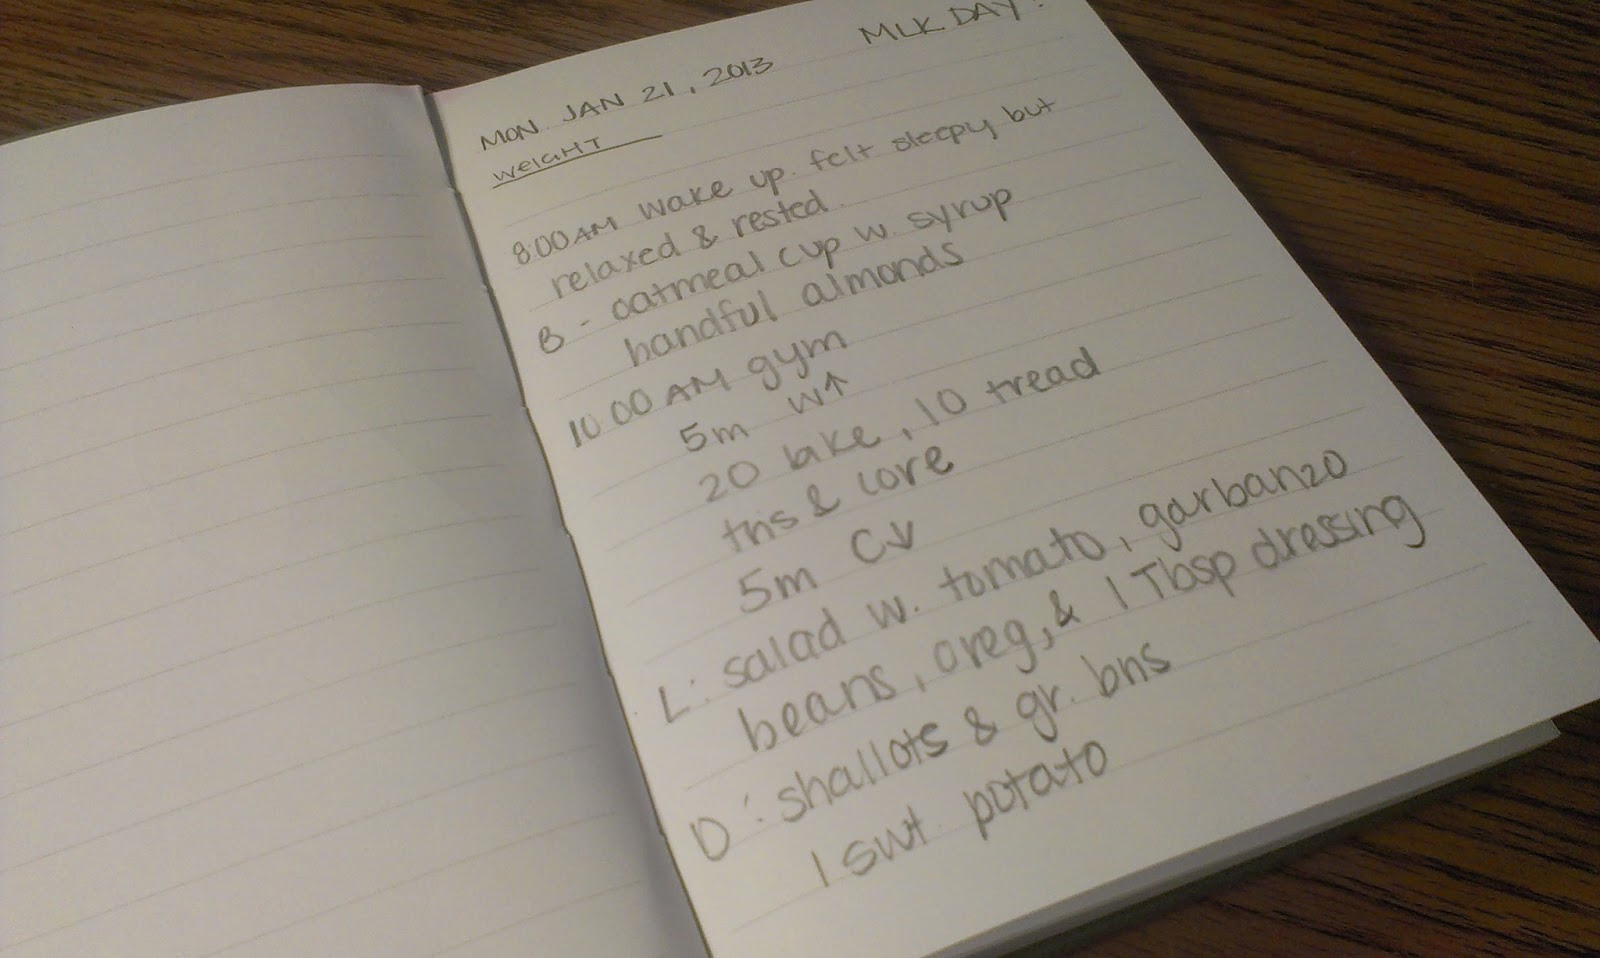 MON. JAN 21, 2013 MLK DAY!
WEIGHT
8:00AM wake up. felt sleepy but
relaxed & rested.
B - oatmeal cup w. syrup
handful almonds
10:00 AM gym
5m W↑
20 bike, 10 tread
& core
5m C↓
L: salad w. tomato, garbanzo
beans, oreg, & 1 Tbsp dressing
D: shallots & gr. bns
1 swt potato